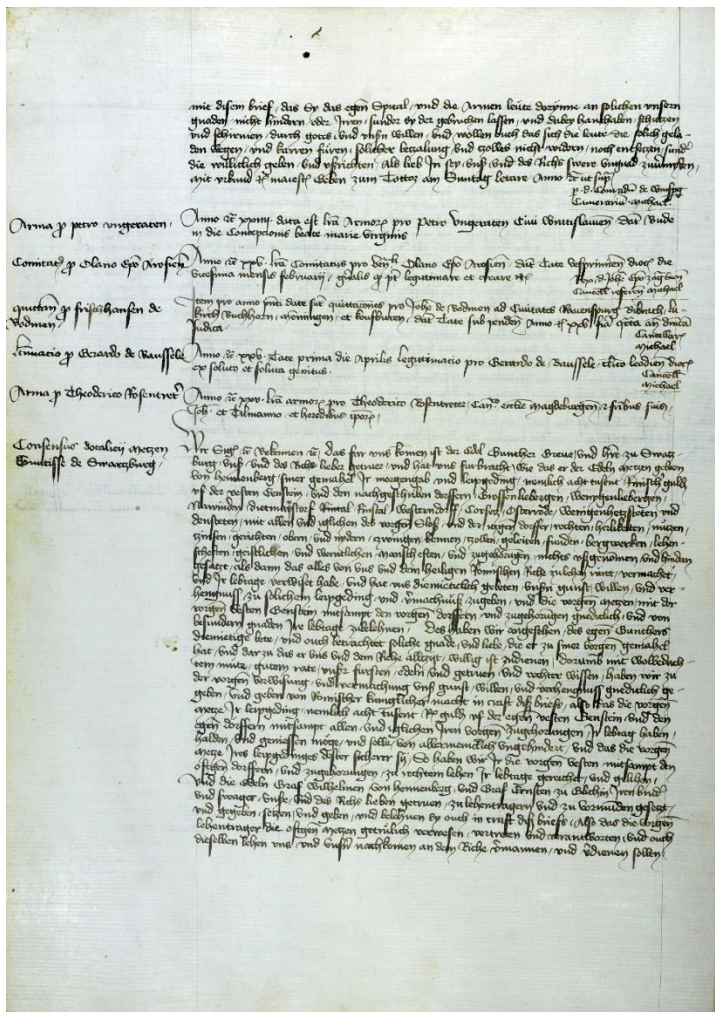 mit disem brief, das Sy das egen Spital, und die Armen leute dorynne an solichen unsern
gnaden nicht hindern oder Irren, sunder sy der gebruchen lassen, und dabey hanthaben, schutzen
und schirmen, durch gotes und unsn willen, und wollen ouch das sich die leute die solich gela-
den wegen und karren füren, solicher betzalung und tzolles nicht widern, noch entsetzen, sunder
die williclich geben und usrichten, als lieb In sy, unser und des Richs swere ungnad zuvermyden,
mit urkund maiest Geben zum Tottoz am Suntag letare Anno ut sup
Cunradum de winspg
Camerariu Michael
Arma p petro ungeraten
Anno xxiiii data est lra Armorz pro Petro Ungeraten Civi Wratislavien Dat Bude
in die Concepcionis beate marie virginis
Comitatz p Olavo Epo Arosien
Anno xxv lra Comitatus pro Olavo Epo Arosien dat Tate vesprimien dioc die
vicesima mensis februarij, legittimare et creare
Cancell Michael
quittan p frischhansen de
Bodmen
Item pro anno date sut quittancones pro Johe de Bodmen ad Civitates Ravenspurg Bibrach, lu-
kirch Buchhorn, memingen, et koufburen, dat Tate sub penden Anno xxv fia qrta an dnica
Judica
Cancellarz
Michael
Ltimacio p Gerardo de Baussele
Anno xxv Tate prima die Aprilis legittimacio pro Gerardo de Baussele, clico leodien dioc
ex soluto et soluta genitus
Cancell
Michael
Arma p Theoderico Rosentret
Anno xxv lra armorz pro Theoderico Rosentreter Can ecclie magdeburgen fribus suis,
Joh et Tilmanno et heredibus ipoz
Consensus dotalicij metzen
Comitisse de Swartzburg
Wir Sig Bekennen das fur uns komen ist der Edel Gunther Greve und her zu Swartz-
burg, unser und des Richs lieber getruer, und hat uns furbracht, wie das er der Edeln metzen geborn
von hennenberg, siner gemahel Ir morgengab und leipgeding, nemlich acht tusent Rinisch guld
uf der vesten Genstein, und den nachgeschriben dorffern, Grossen liebergen, Wenigenliebergen,
densteten, mit allen und iglichen des vorgen Sloss und der itzgen dorffer, rechten, heilikeiten, nutzen,
zinsen, gerichten, obern, und nydern, zwingen, bennen, zollen, geleiten, funden, bergwerken, lehen-
scheften, geistlichen und werntlichen, manscheften, und zugehorungen, nichts ussgenomen, und hindan
gesatzt, als dann das alles von uns und dem heiligen Romischen Riche zulehen rurt, vermachet,
und Ir lebtage verwiset habe, und hat uns diemuticlich gebeten unsn gunst, willen, und ver-
hengnuss, zu solichem leipgeding und vermachnuss zugeben, und die vorgen metzen, mit der
vorgen vesten Genstein mitsampt den vorgen dorffern, und zugehorungen gnediclich, und von
besundern gnaden Ire lebtage zubelehnen, Des haben wir angesehen, des egen Gunthers
diemutige bete, und ouch betrachtet soliche gnade, und liebe, die er zu siner vorgen gemahel
hat, und dar zu das er uns und dem Riche allzyt willig ist zudienen, dorumb mit Wolbedach-
tem mute, gutem rate, unsr fursten, edeln und getruen, und rechter wissen, haben wir zu
der vorgen verwisung, und vermachung unser gunst, willen, und verhengnuss gnediclich ge-
geben, und geben von Romischer kunglicher macht in craft diss briefs, also das die vorgen
metze Ir leipgeding, nemlich acht tusent guld uf der egen vesten Genstein und den
egen dorffern mitsampt allen, und iglichen Iren vorgen zugehorungen Ir lebtag haben,
halden, und geniessen moge, und solle, von allermeniclich ungehindert, und das die vorgen
metze Irs leipgedinges dester sicherer sy, So haben wir Ir die vorgen vesten mitsampt den
oftgen dorffern und zugehorungen, zu rechtem lehen Ir lebtage gereicht, und gelihen,
und die edeln Graf Wilhelmen von hennenberg, und Graf Ernsten zu Glichin, Iren brud
und swager, unser und des Richs lieben getruen, zu lehentragern und zu vormunden gesetzt,
und gegeben, setzen, und geben, und belehnen sy ouch in craft diss briefs, Also das die vorgen
lehentrager die oftgen metzen getrulich verwesen, vertreten und verantworten, und ouch
dieselben lehen uns, und unsn nachkomen an dem Riche vermannen, und verdienen sollen